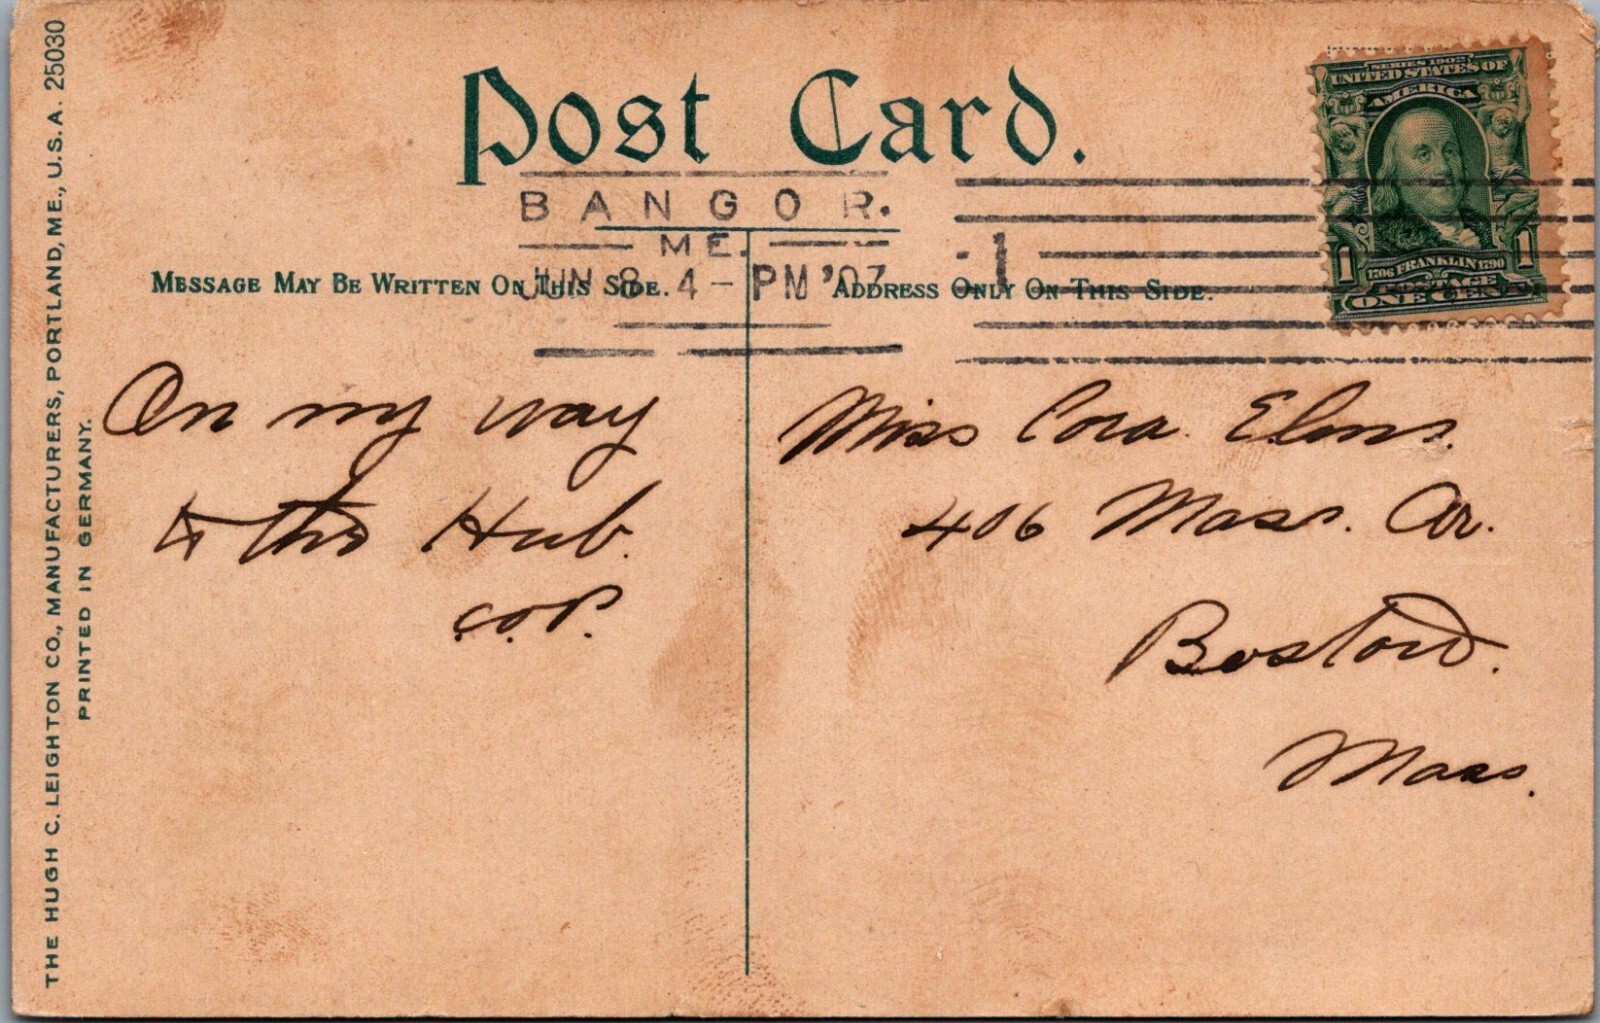 THE HUGH C. LEIGHTON CO., MANUFACTURERS, PORTLAND, ME., U.S.A. 25030
PRINTED IN GERMANY.
Post Card.
SERIES 1902
UNITED STATES OF
AMERICA
1 1
1706 FRANKLIN 1790
POSTAGE
ONE CENT
BANGOR.
ME.
JUN 8 4-PM '07
1
MESSAGE MAY BE WRITTEN ON THIS SIDE.
ADDRESS ONLY ON THIS SIDE.
On my way
to the Hub.
C.O.P.
Miss Cora Elms.
406 Mass. Av.
Boston.
Mass.